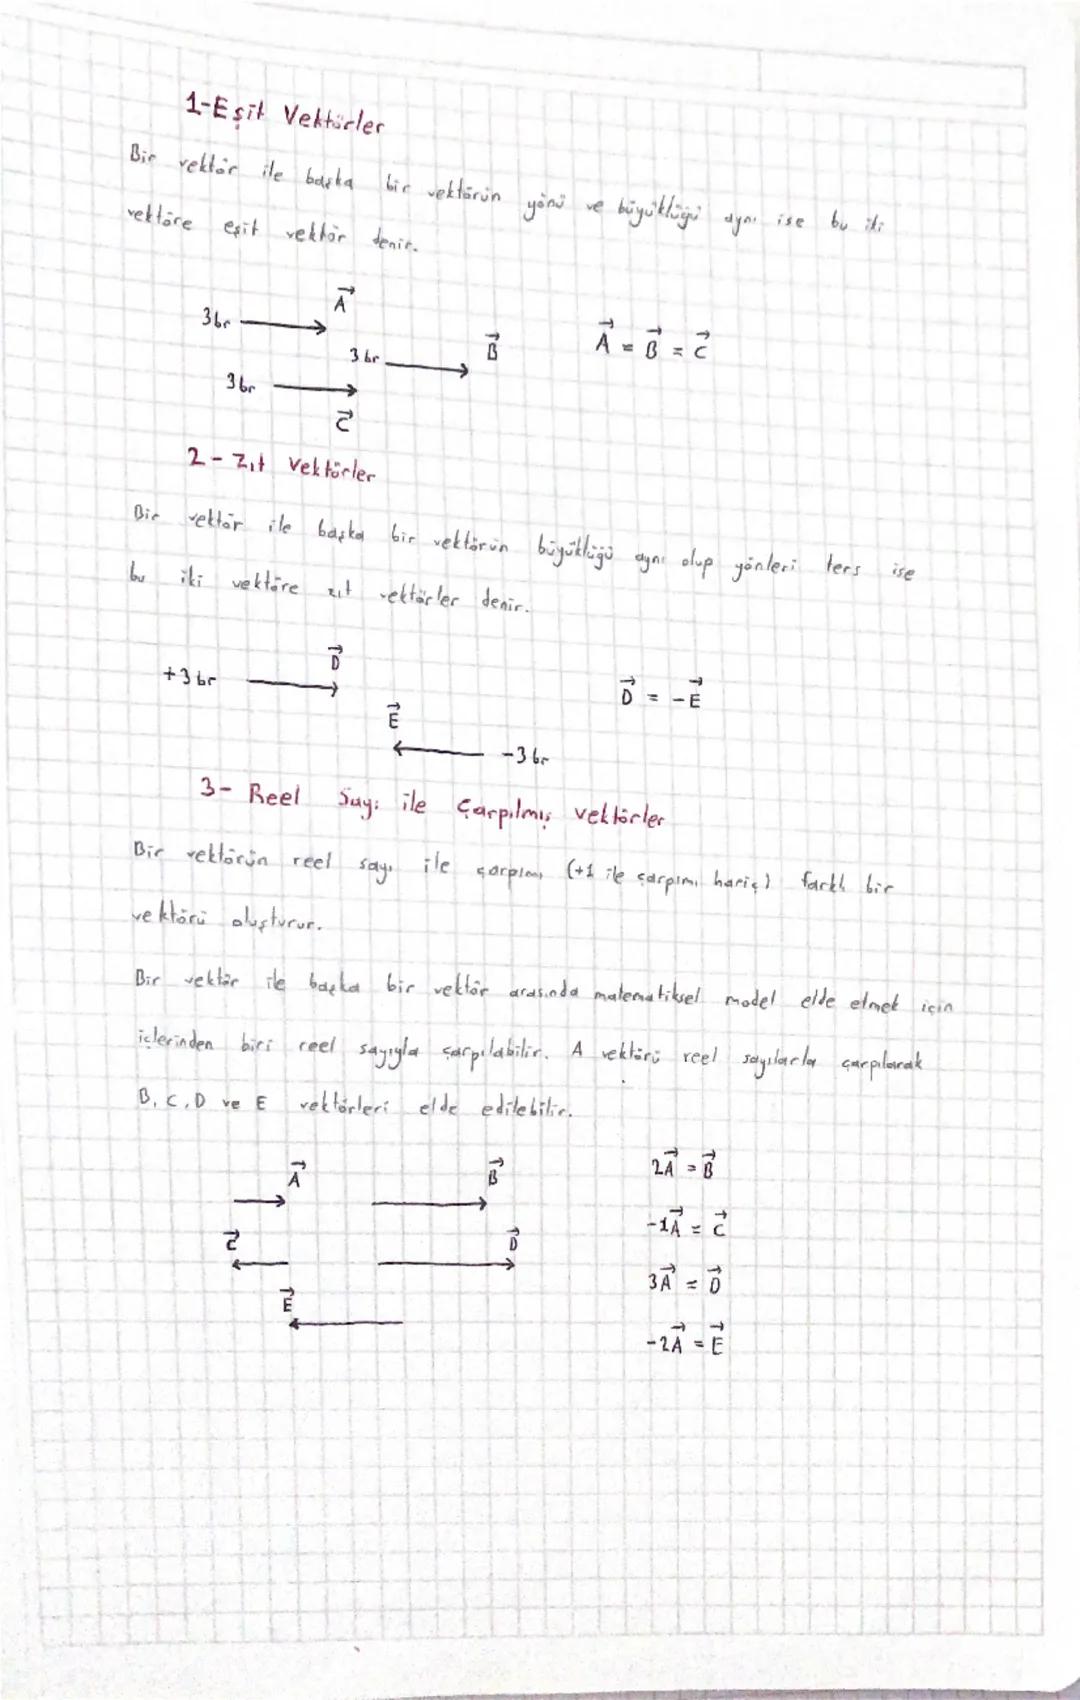 1-Eşit Vektörler
Bir vektör ile başka bir vektörün yönü ve büyüklüğü aynı ise bu iki
vektöre eşit vektör denir.
A
3br
B
3br
A = B = C
3br
C
2-Zıt Vektörler
Bir vektör ile başka bir vektörün büyüklüğü aynı olup yönleri ters ise
bu iki vektöre zıt vektörler denir.
D
+3br
D = -E
E
-3br
3- Reel Sayı ile Çarpılmış vektörler
Bir vektörün reel sayı ile çarpımı (+1 ile çarpımı hariç) farklı bir
vektörü oluşturur.
Bir vektör ile başka bir vektör arasında matematiksel model elde etmek için
içlerinden biri reel sayıyla çarpılabilir. A vektörü reel sayılarla çarpılarak
B, C, D ve E vektörleri elde edilebilir.
A B 2A = B
C D -1A = C
E 3A = D
-2A = E